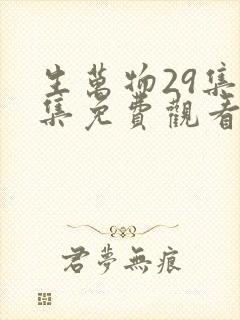 生萬物29集
集免費觀看
君夢無痕